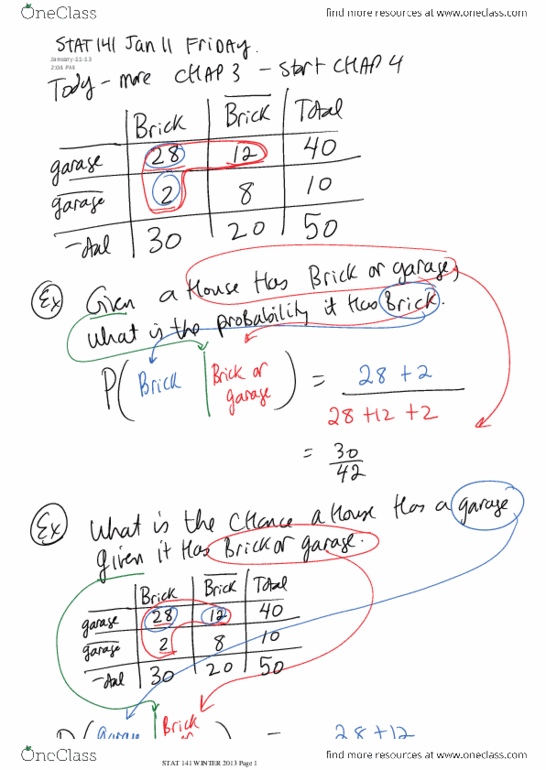 OneClass
find more resources at www.oneclass.com
STAT 141 Jan 11 Friday.
January-11-13
2:05 PM
Tody - more CHAP 3 - start CHAP 4
Brick Brick Total
garage 28 12 40
garage 2 8 10
Total 30 20 50
Ex Given a House Has Brick or garage,
what is the probability it Has Brick.
P( Brick | Brick or garage ) = 28 + 2
28 + 12 + 2
= 30
42
Ex What is the Chance a House Has a garage
given it Has Brick or garage.
Brick Brick Total
garage 28 12 40
garage 2 8 10
Total 30 20 50
P( Garage | Brick ) = 28 + 12
OneClass
find more resources at www.oneclass.com
STAT 141 WINTER 2013 Page 1